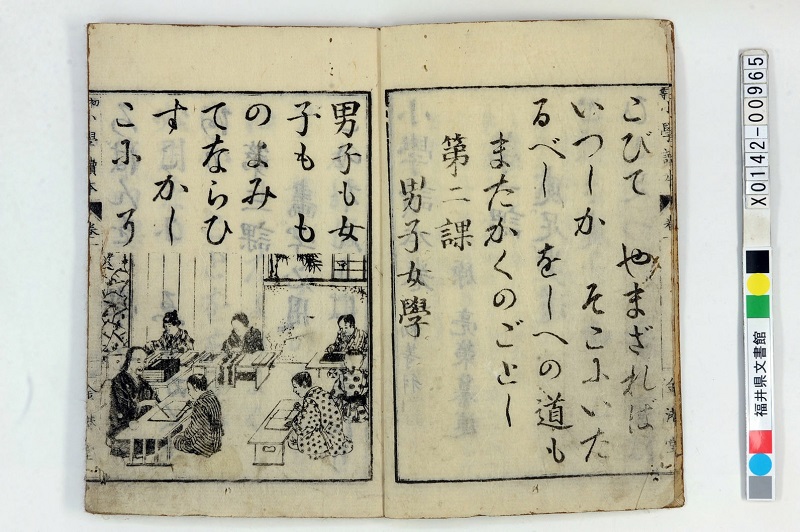 こびて やまざれば
いつしか そこふいた
るべし をしへの道も
またかくのごとし
第二課
男子女學
男子も女
子もも
のよみ
てならひ
すかし
こふり
小學讀本
卷一
金港堂
福井県文書館
X0142-00965